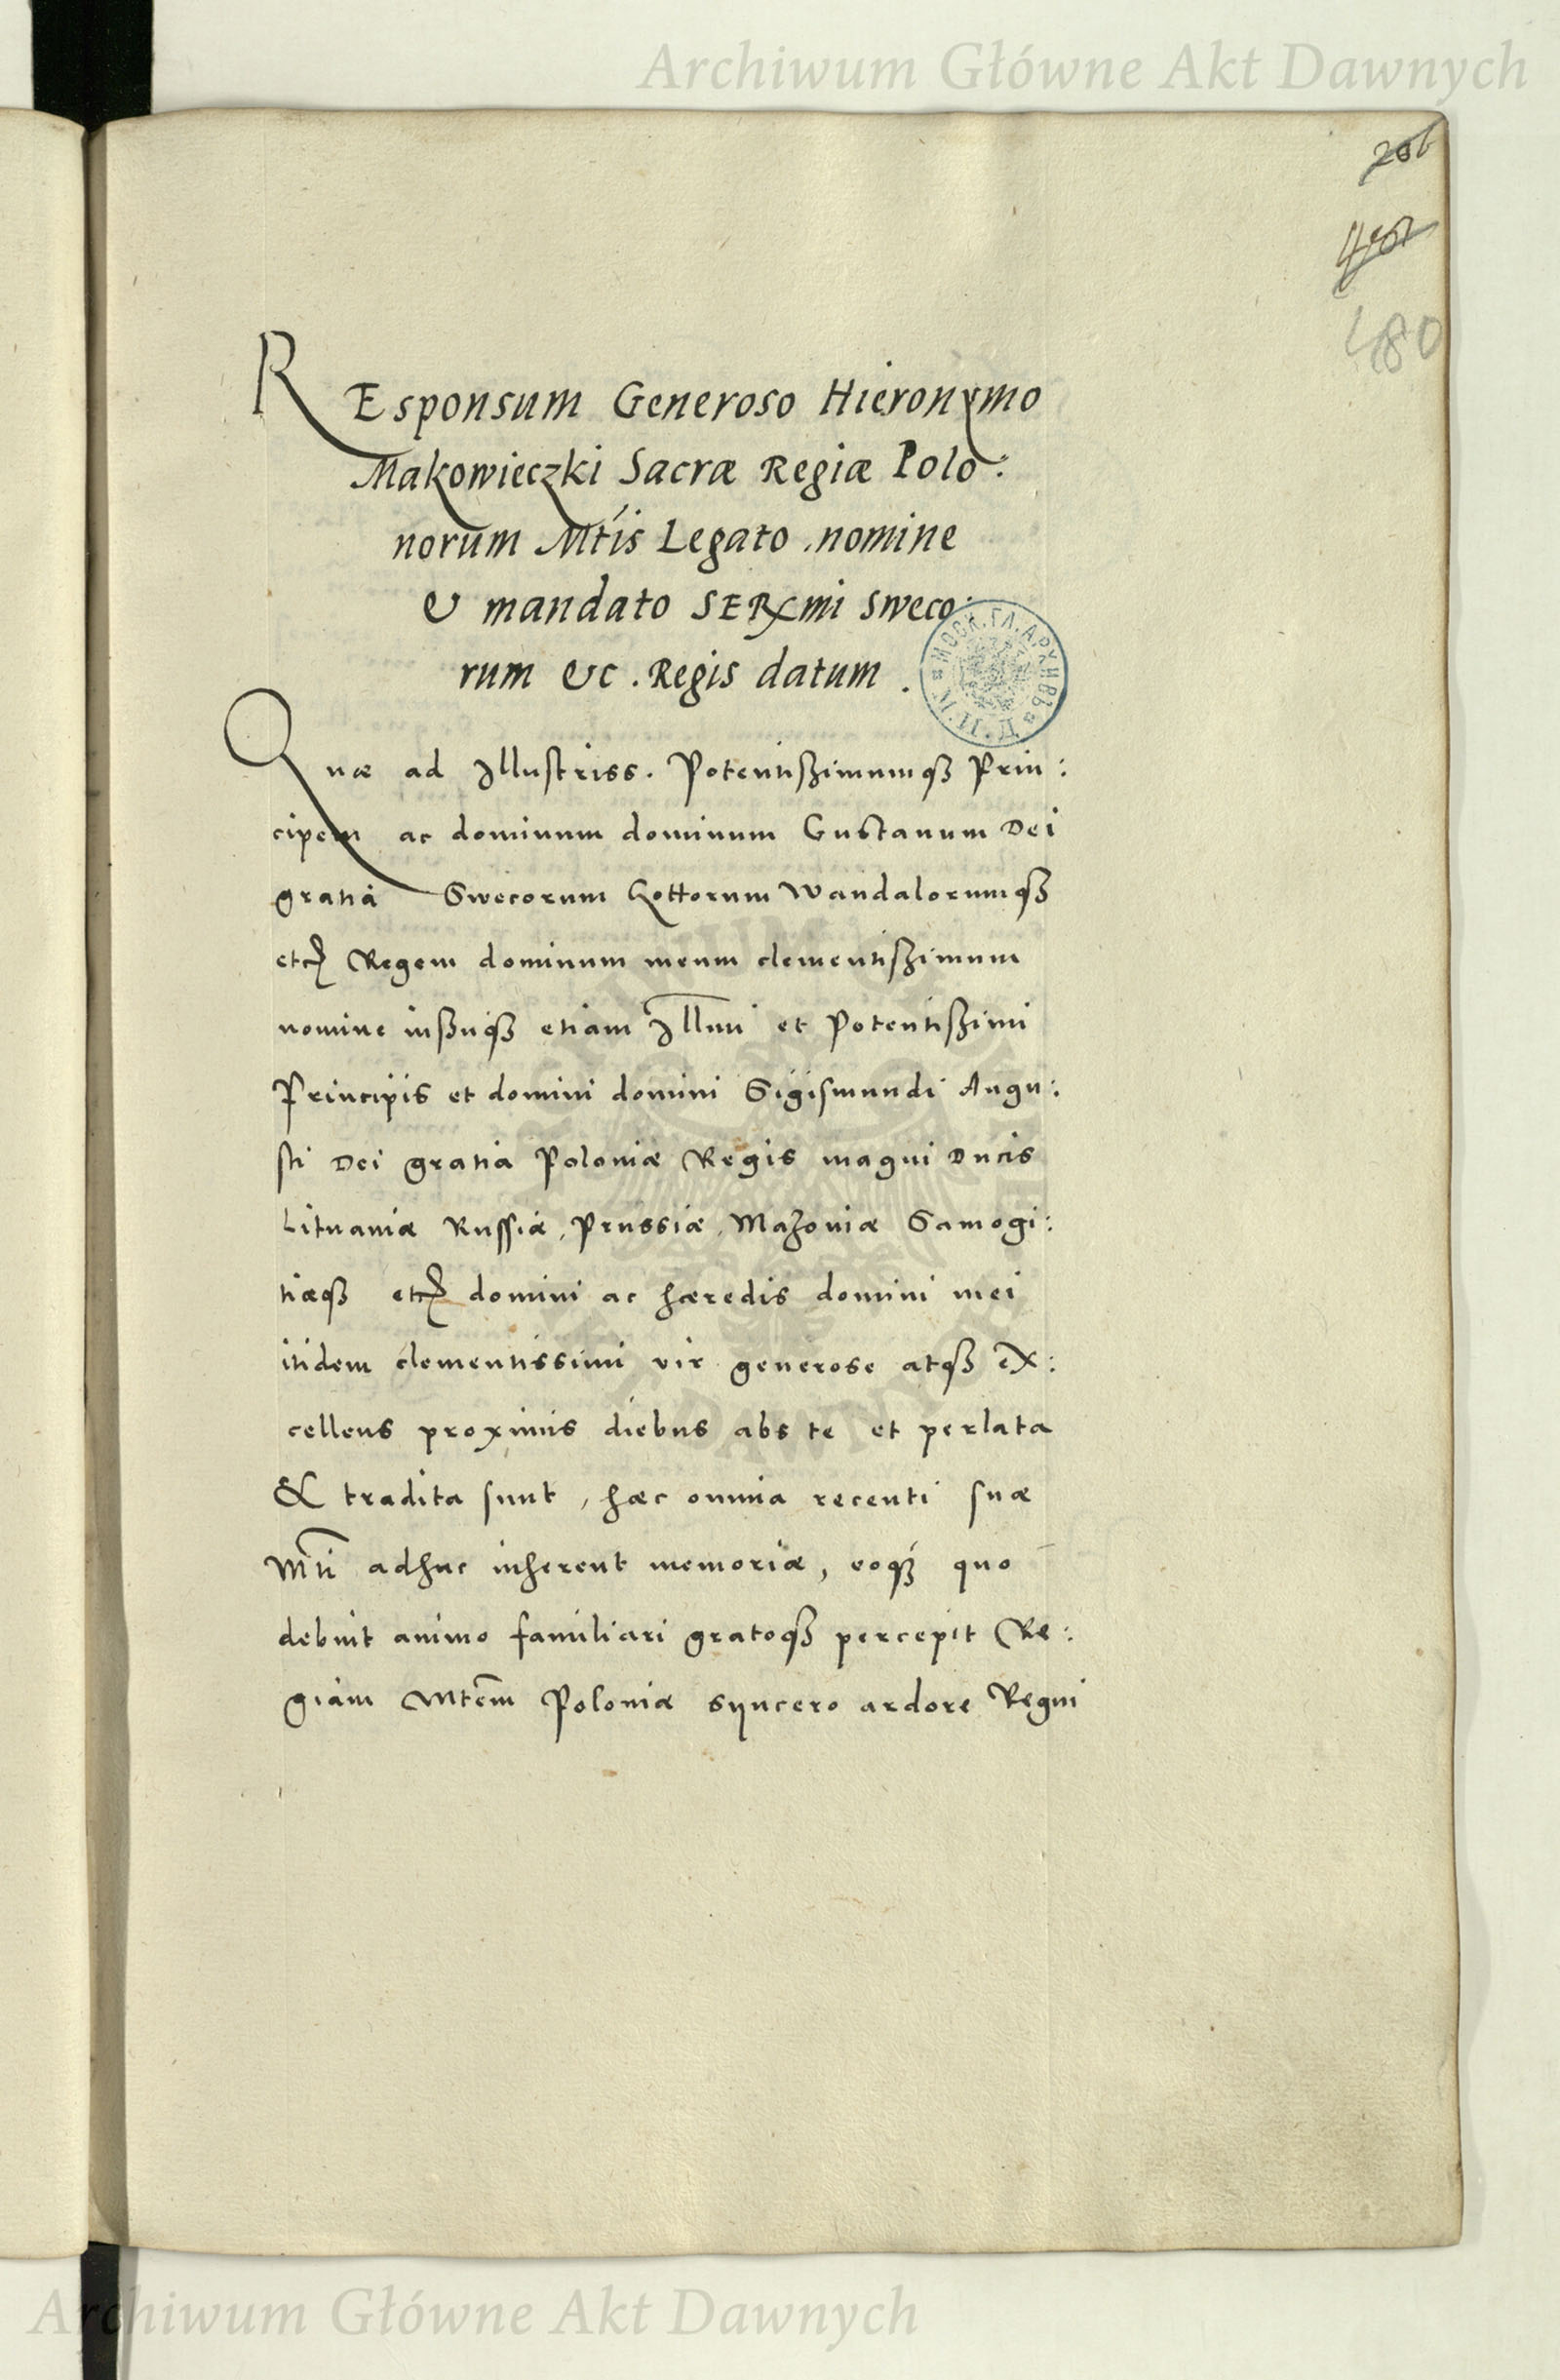 Archiwum Główne Akt Dawnych
480
REsponsum Generoso Hieronymo
Makowieczki Sacræ Regiæ Polo:
norum Mtis Legato nomine
& mandato SERmi Sweco:
rum &c. Regis datum.
МОСК. ГЛ. АРХИВЪ
Quæ ad Illustriss. Potentissimumqȝ Prin:
cipem ac dominum dominum Gustauum Dei
gratia Swecorum Gottorum Wandalorumqȝ
etc Regem dominum meum clementissimum
nomine iussuqȝ etiam Illmi et Potentissimi
Principis et domini domini Sigismundi Augu:
sti Dei gratia Poloniæ Regis magni Ducis
Lituaniæ Russiæ, Prussiæ, Mazouiæ Samogi:
tiæqȝ etc domini ac hæredis domini mei
itidem clementissimi vir generose atqȝ ex:
cellens proximis diebus abs te et perlata
& tradita sunt, hæc omnia recenti suæ
Mti adhuc inherent memoriæ, eoqȝ quo
debuit animo familiari gratoqȝ percepit Re:
giam Mtem Poloniæ syncero ardore Regni
Archiwum Główne Akt Dawnych